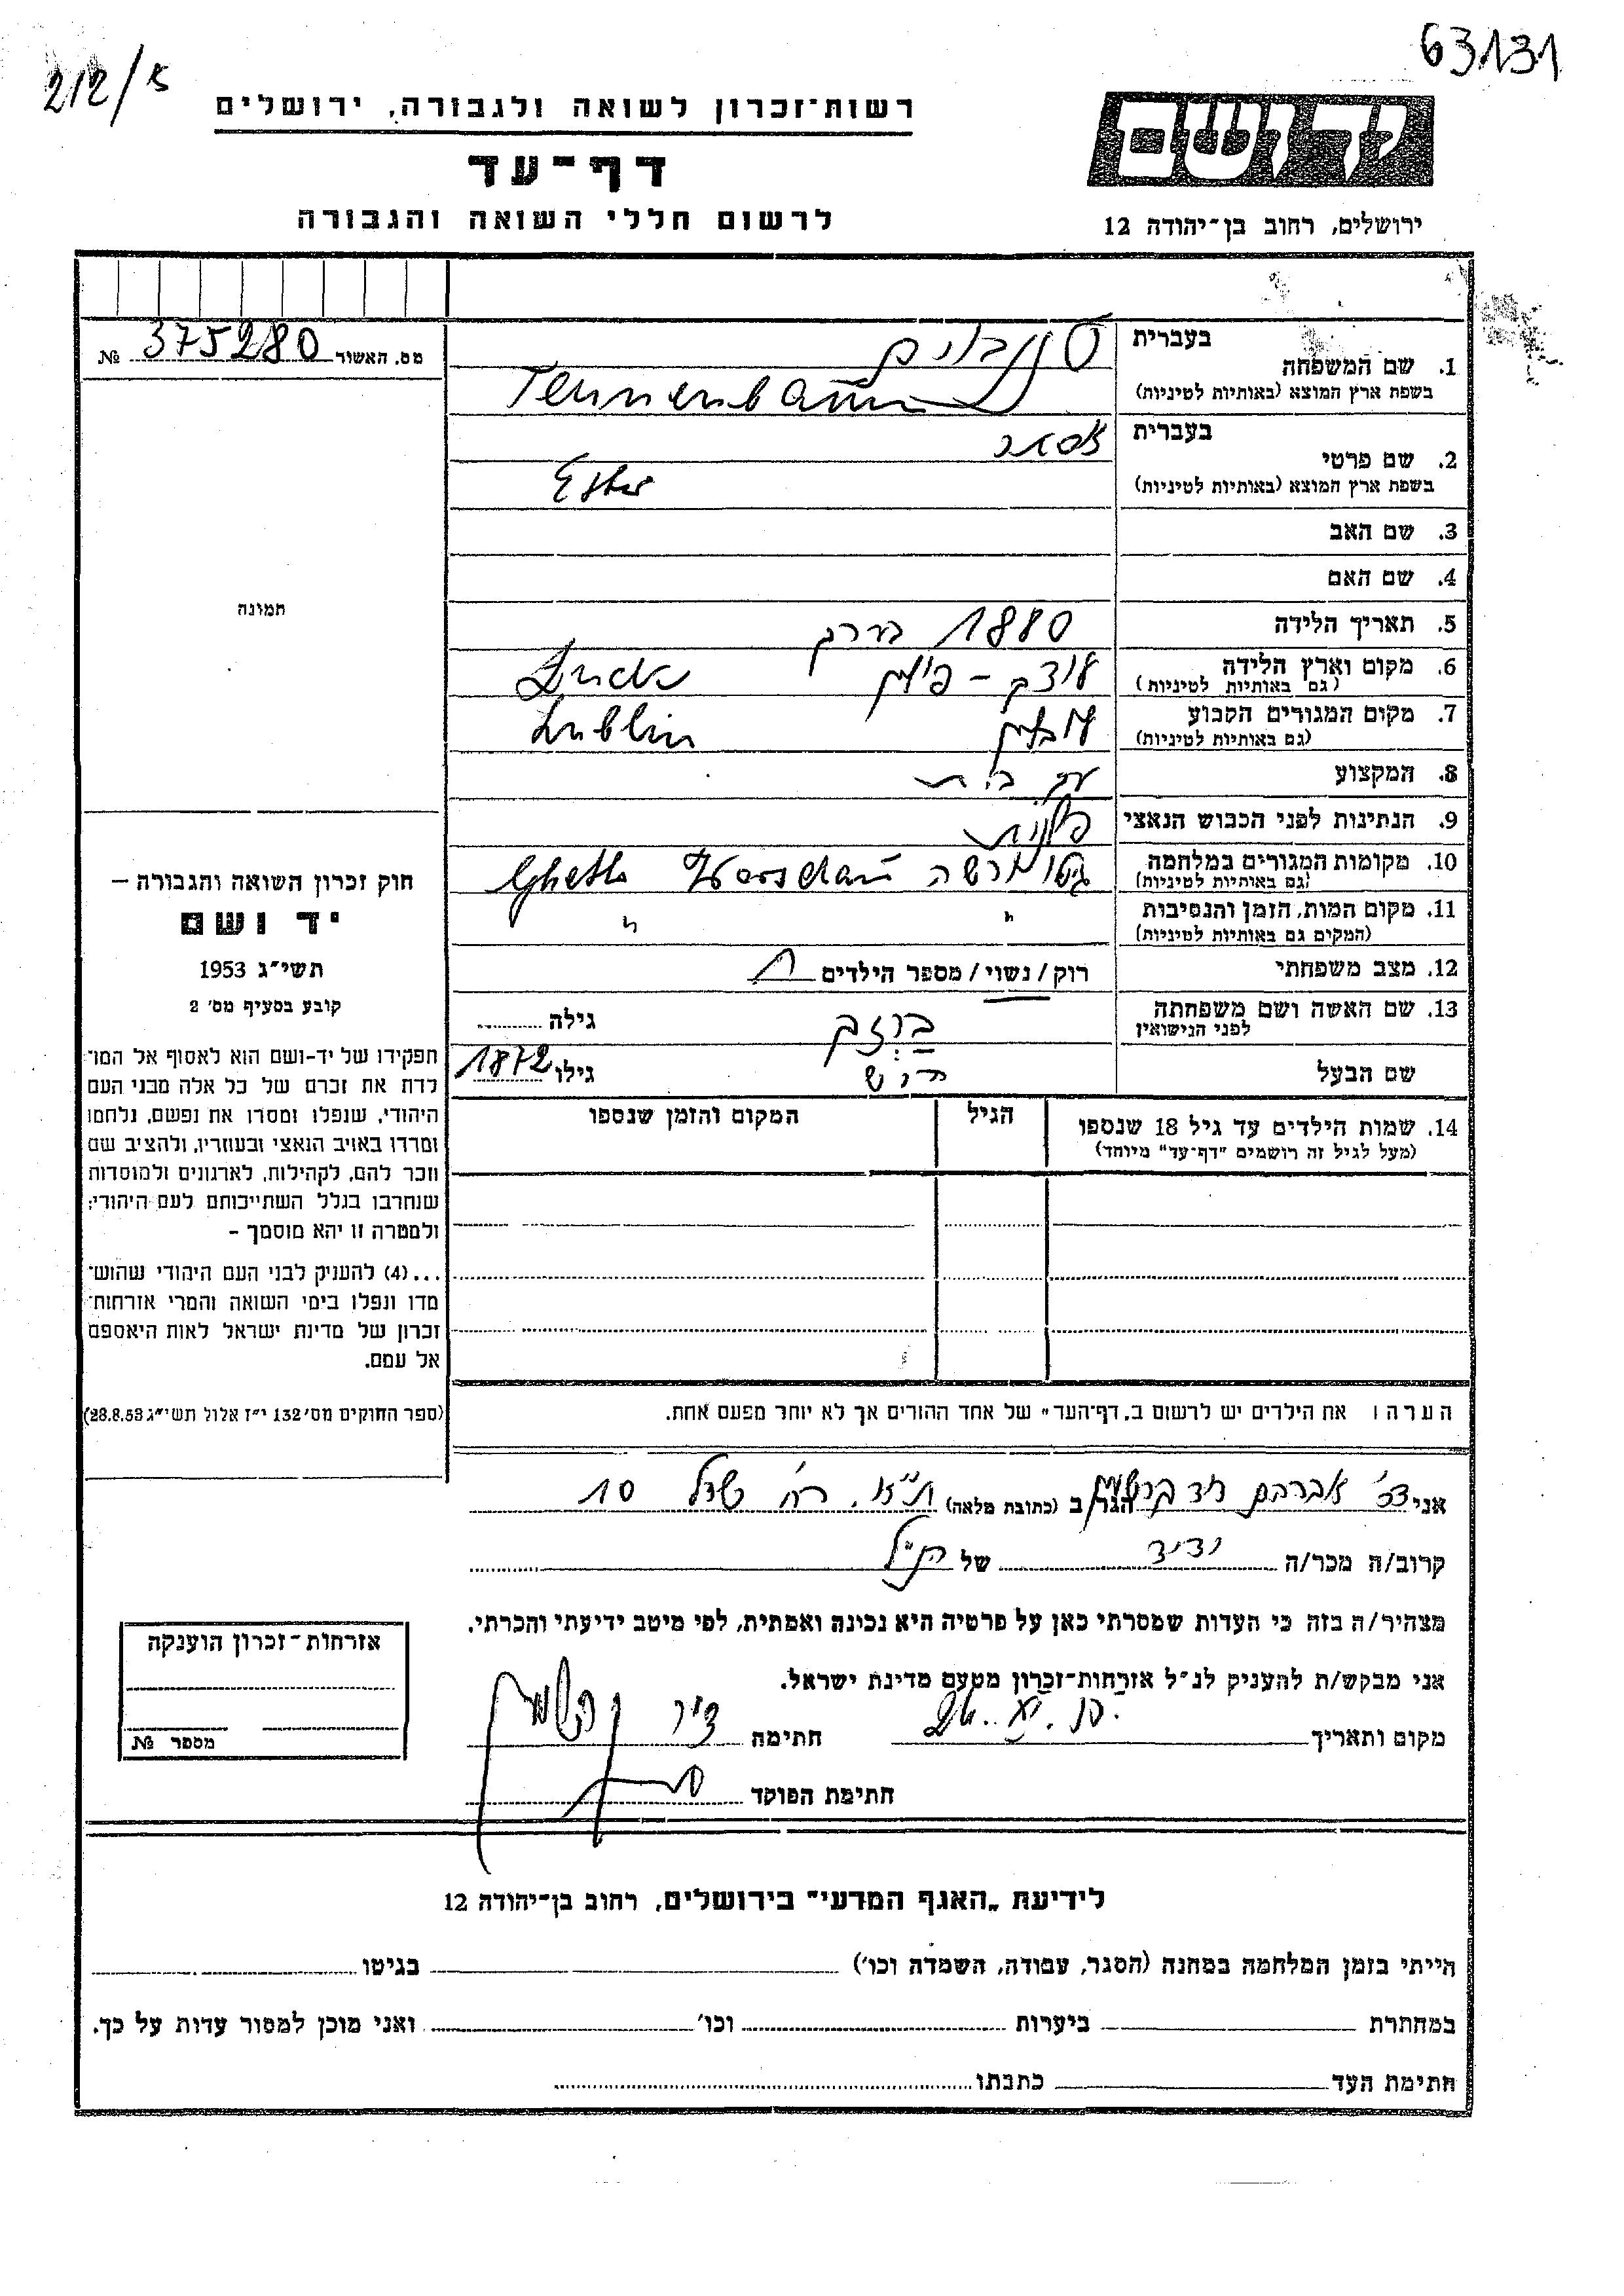 63131
212/א
רשות־זכרון לשואה ולגבורה, ירושלים
דף־עד
לרשום חללי השואה והגבורה
יד ושם
ירושלים, רחוב בן־יהודה 12
מס. האשור 375280 №
תמונה
חוק זכרון השואה והגבורה –
יד ושם
תשי״ג 1953
קובע בסעיף מס׳ 2
תפקידו של יד-ושם הוא לאסוף אל המו־
לדת את זכרם של כל אלה מבני העם
היהודי, שנפלו ומסרו את נפשם, נלחמו
ומרדו באויב הנאצי ובעוזריו, ולהציב שם
וזכר להם, לקהילות, לארגונים ולמוסדות
שנחרבו בגלל השתייכותם לעם היהודי;
ולמטרה זו יהא מוסמך –
...(4) להעניק לבני העם היהודי שהוש־
מדו ונפלו בימי השואה והמרי אזרחות־
זכרון של מדינת ישראל לאות היאספם
אל עמם.
(ספר החוקים מס׳ 132 י״ז אלול תשי״ג 28.8.53)
בעברית טננבוים
1. שם המשפחה
בשפת ארץ המוצא (באותיות לטיניות) Tennenbaum
בעברית אסתר
2. שם פרטי
בשפת ארץ המוצא (באותיות לטיניות) Ester
3. שם האב
4. שם האם
5. תאריך הלידה 1880 בערך
6. מקום וארץ הלידה לוצק – פולין Łuck
(גם באותיות לטיניות)
7. מקום המגורים הקבוע לובלין Lublin
(גם באותיות לטיניות)
8. המקצוע עק. בית
9. הנתינות לפני הכבוש הנאצי פולנית
10. מקומות המגורים במלחמה גיטו ורשה Ghetto Warschau
(גם באותיות לטיניות)
11. מקום המות, הזמן והנסיבות " "
(המקום גם באותיות לטיניות)
12. מצב משפחתי רוק/נשוי/מספר הילדים
13. שם האשה ושם משפחתה גילה
לפני הנישואין
שם הבעל גילו 1872
14. שמות הילדים עד גיל 18 שנספו הגיל המקום והזמן שנספו
(מעל לגיל זה רושמים "דף־עד" מיוחד)
הערה: את הילדים יש לרשום ב„דף־העד״ של אחד ההורים אך לא יותר מפעם אחת.
אני אברהם הגר ב (כתובת מלאה) ת״א, רח׳ 10
קרוב/ה מכר/ה ידיד של הנ״ל
מצהיר/ה בזה כי העדות שמסרתי כאן על פרטיה היא נכונה ואמתית, לפי מיטב ידיעתי והכרתי.
אני מבקש/ת להעניק לנ״ל אזרחות־זכרון מטעם מדינת ישראל.
מקום ותאריך חתימה
חתימת הפוקד
אזרחות־זכרון הוענקה
מספר №
לידיעת „האגף המדעי״ בירושלים, רחוב בן־יהודה 12
הייתי בזמן המלחמה במחנה (הסגר, עבודה, השמדה וכו׳) בגיטו
במחתרת ביערות וכו׳ ואני מוכן למסור עדות על כך.
חתימת העד כתבתו